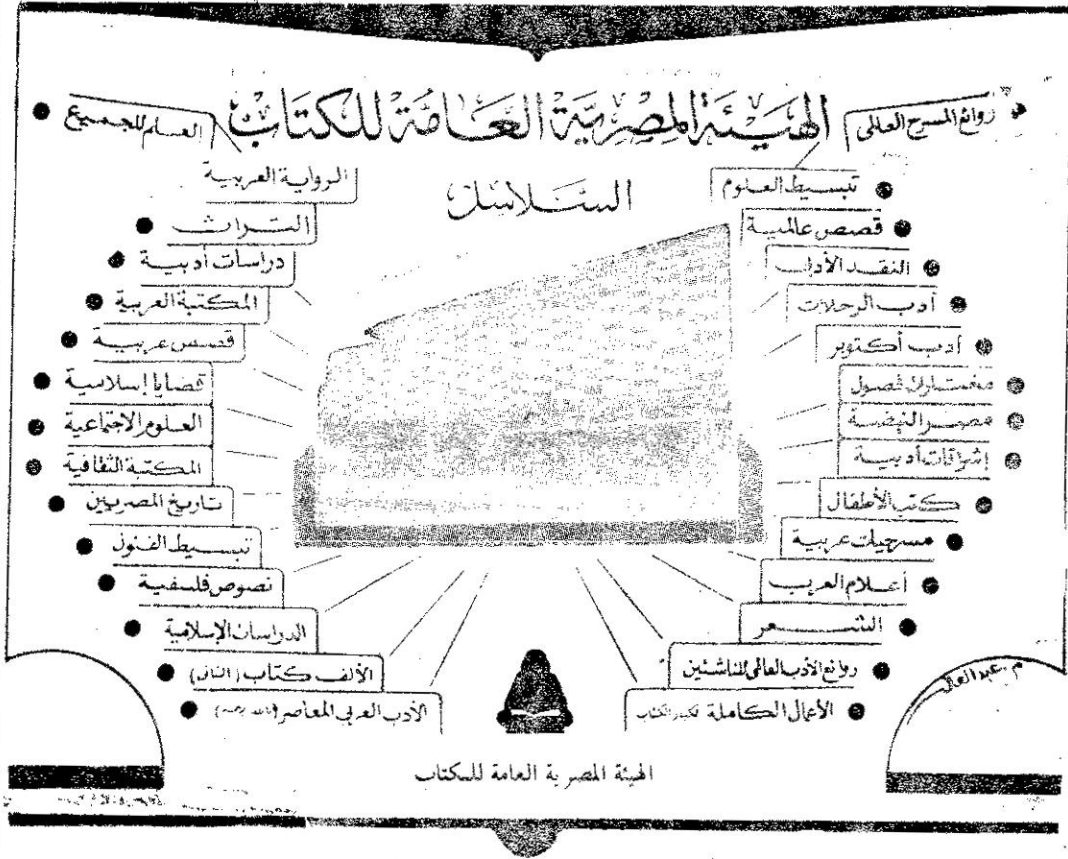 الهيئة المصرية العامة للكتاب
السلاسل
روائع المسرح العالمى
تبسيط العلوم
قصص عالمية
النقد الأدبى
أدب الرحلات
أدب أكتوبر
مصر النهضة
إشراقات أدبية
كتب الأطفال
مسرحيات عربية
أعلام العرب
الشعر
روائع الأدب العالمى للناشئين
الأعمال الكاملة لكبار الكتاب
العلم للجميع
الرواية العربية
التراث
دراسات أدبية
المكتبة العربية
قصص عربية
قضايا إسلامية
العلوم الاجتماعية
المكتبة الثقافية
تاريخ المصريين
تبسيط الفنون
نصوص فلسفية
الدراسات الإسلامية
الألف كتاب (الثانى)
الأدب العربى المعاصر
م. عبد العال
الهيئة المصرية العامة للكتاب